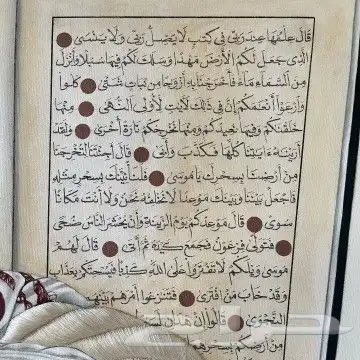 قَالَ عِلْمُهَا عِندَ رَبِّي فِي كِتَٰبٍ لَّا يَضِلُّ رَبِّي وَلَا يَنسَى
الَّذِي جَعَلَ لَكُمُ الْأَرْضَ مَهْدًا وَسَلَكَ لَكُمْ فِيهَا سُبُلًا وَأَنزَلَ
مِنَ السَّمَاءِ مَاءً فَأَخْرَجْنَا بِهِ أَزْوَٰجًا مِّن نَّبَاتٍ شَتَّىٰ كُلُوا
وَارْعَوْا أَنْعَٰمَكُمْ إِنَّ فِي ذَٰلِكَ لَآيَٰتٍ لِّأُولِي النُّهَىٰ مِنْهَا
خَلَقْنَٰكُمْ وَفِيهَا نُعِيدُكُمْ وَمِنْهَا نُخْرِجُكُمْ تَارَةً أُخْرَىٰ وَلَقَدْ
أَرَيْنَٰهُ ءَايَٰتِنَا كُلَّهَا فَكَذَّبَ وَأَبَىٰ قَالَ أَجِئْتَنَا لِتُخْرِجَنَا
مِنْ أَرْضِنَا بِسِحْرِكَ يَا مُوسَىٰ فَلَنَأْتِيَنَّكَ بِسِحْرٍ مِّثْلِهِ
فَاجْعَلْ بَيْنَنَا وَبَيْنَكَ مَوْعِدًا لَّا نُخْلِفُهُ نَحْنُ وَلَا أَنتَ مَكَانًا
سُوًى قَالَ مَوْعِدُكُمْ يَوْمُ الزِّينَةِ وَأَن يُحْشَرَ النَّاسُ ضُحًى
فَتَوَلَّىٰ فِرْعَوْنُ فَجَمَعَ كَيْدَهُ ثُمَّ أَتَىٰ قَالَ لَهُم
مُّوسَىٰ وَيْلَكُمْ لَا تَفْتَرُوا عَلَى اللَّهِ كَذِبًا فَيُسْحِتَكُم بِعَذَابٍ
وَقَدْ خَابَ مَنِ افْتَرَىٰ فَتَنَٰزَعُوا أَمْرَهُم بَيْنَهُمْ
النَّجْوَىٰ قَالُوا إِنْ هَٰذَٰنِ
مِّنْ أَرْضِكُم بِسِحْرِهِمَا